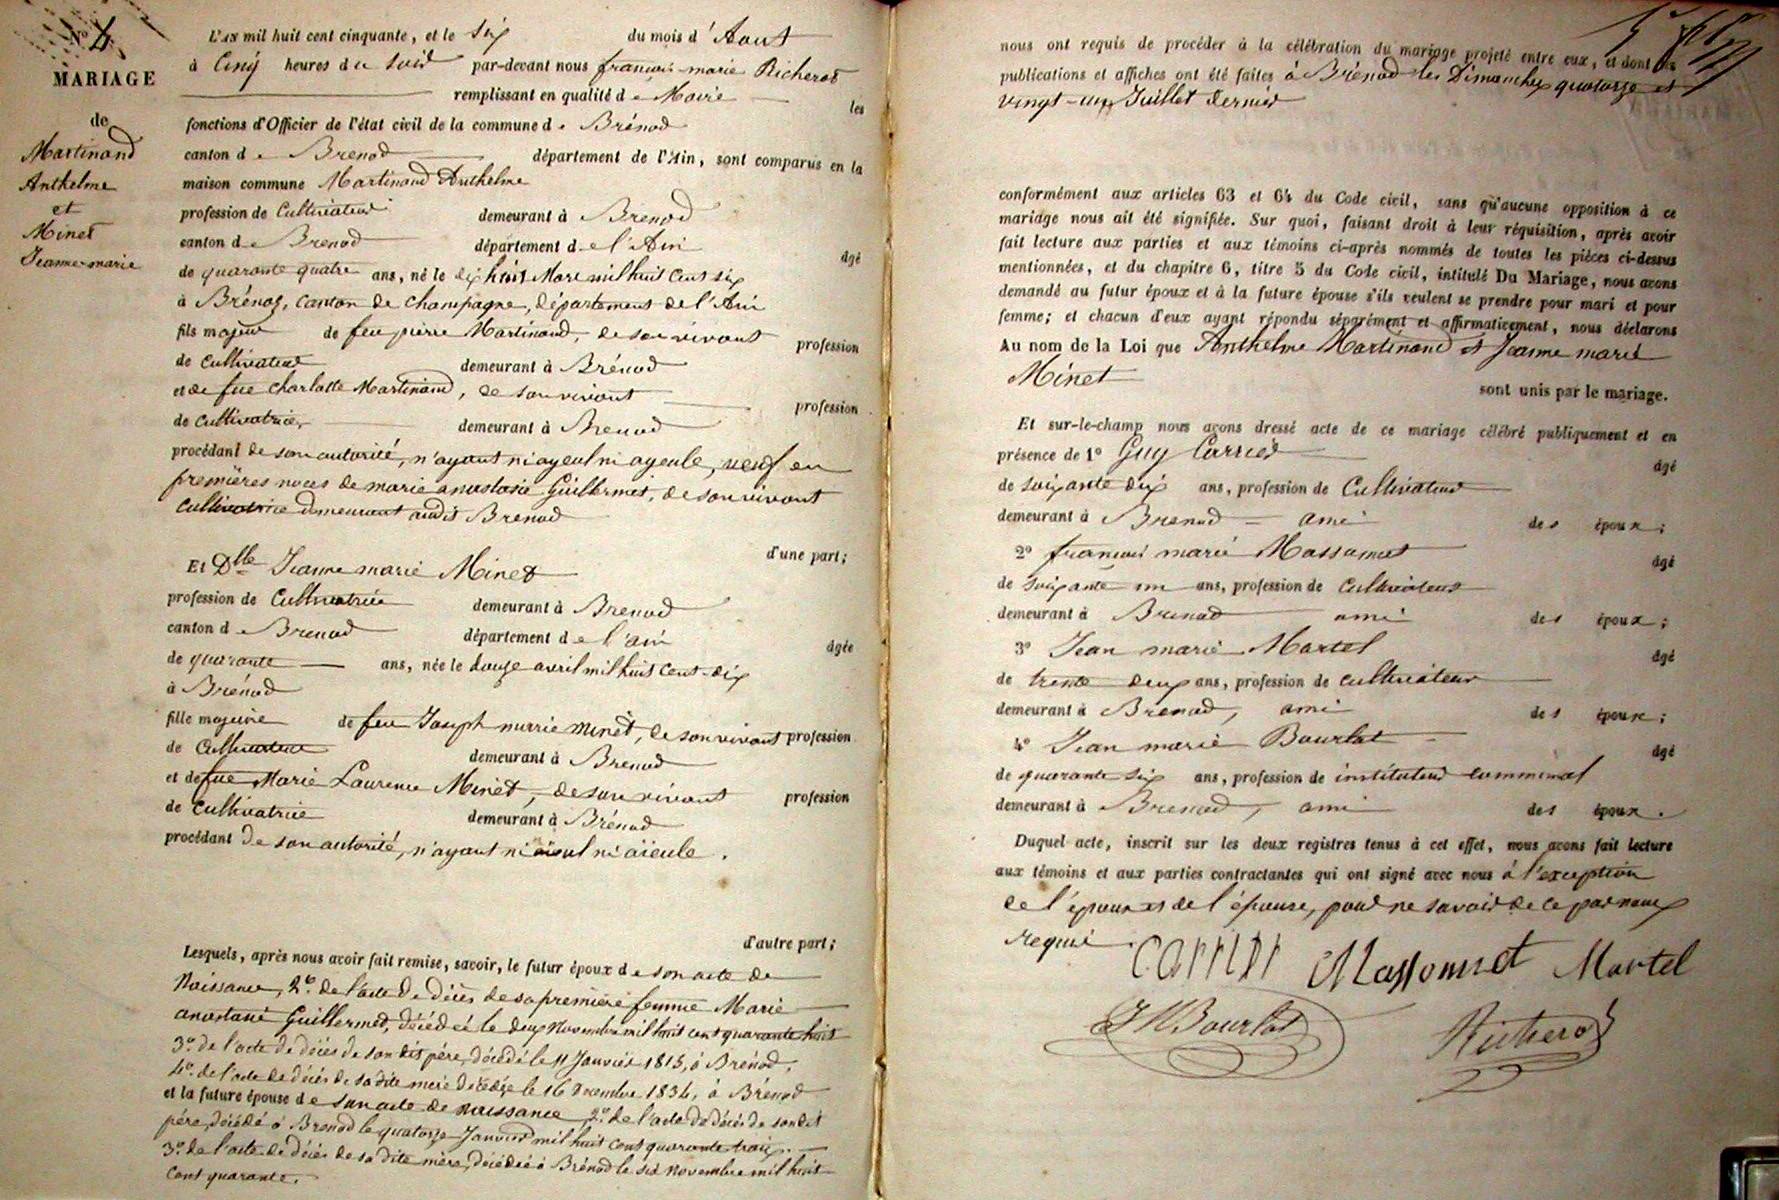 N° 4
MARIAGE
de
Martinand
Anthelme
et
Minet
Jeanne marie
L'AN mil huit cent cinquante, et le six du mois d'Aout
à Cinq heures du soir par-devant nous françois marie Richerot
remplissant en qualité de Maire les
fonctions d'Officier de l'état civil de la commune de Brénod
canton de Brenod département de l'Ain, sont comparus en la
maison commune Martinand Anthelme
profession de Cultivateur demeurant à Brenod
canton de Brenod département de l'Ain âgé
de quarante quatre ans, né le dix huit Mars mil huit cent six
à Brénoz, canton de champagne, département de l'Ain
fils majeur de feu pierre Martinand, de son vivant profession
de cultivateur demeurant à Brénod
et de fue charlotte Martinand, de son vivant profession
de cultivatrice, demeurant à Brenod
procédant de son autorité, n'ayant ni ayeul ni ayeule, veuf en
premières noces de marie anastasie Guillermet, de son vivant
cultivatrice demeurant audit Brenod
d'une part;
Et Dlle Jeanne marie Minet
profession de Cultivatrice demeurant à Brenod
canton de Brenod département de l'ain âgée
de quarante ans, née le douze avril mil huit cent dix
à Brénod
fille majeure de feu Joseph marie minet, de son vivant profession
de Cultivateur demeurant à Brenod
et de fue Marie Laurence Minet, de son vivant profession
de Cultivatrice demeurant à Brénod
procédant de son autorité, n'ayant ni aïeul ni aïeule.
d'autre part;
Lesquels, après nous avoir fait remise, savoir, le futur époux de son acte de
Naissance, 2° de l'acte de décès de sa première femme Marie
anastasie Guillermet, décédée le deux novembre mil huit cent quarante huit
3° de l'acte de décès de son dit père, décédé le 11 Janvier 1815, à Brénod,
4° de l'acte de décès de sa dite mère décédée le 16 Decembre 1834, à Brénod
et la future épouse de son acte de naissance 2° de l'acte de décès de son dit
père, décédé à Brenod le quatorze Janvier mil huit cent quarante trois.
3° de l'acte de décès de sa dite mère, décédée à Brénod le six novembre mil huit
cent quarante.
nous ont requis de procéder à la célébration du mariage projeté entre eux, et dont les
publications et affiches ont été faites à Brénod les Dimanches quatorze et
vingt-un Juillet dernier
conformément aux articles 63 et 64 du Code civil, sans qu'aucune opposition à ce
mariage nous ait été signifiée. Sur quoi, faisant droit à leur réquisition, après avoir
fait lecture aux parties et aux témoins ci-après nommés de toutes les pièces ci-dessus
mentionnées, et du chapitre 6, titre 5 du Code civil, intitulé Du Mariage, nous avons
demandé au futur époux et à la future épouse s'ils veulent se prendre pour mari et pour
femme; et chacun d'eux ayant répondu séparément et affirmativement, nous déclarons
Au nom de la Loi que Anthelme Martinand et Jeanne marie
Minet
sont unis par le mariage.
Et sur-le-champ nous avons dressé acte de ce mariage célébré publiquement et en
présence de 1° Guy Carrier âgé
de soixante dix ans, profession de Cultivateur
demeurant à Brenod ami des époux;
2° françois marie Massonnet âgé
de soixante un ans, profession de cultivateur
demeurant à Brenod ami des époux;
3° Jean marie Martel âgé
de trente deux ans, profession de cultivateur
demeurant à Brenod, ami des époux;
4° Jean marie Bourlot âgé
de quarante six ans, profession de instituteur communal
demeurant à Brenod, ami des époux.
Duquel acte, inscrit sur les deux registres tenus à cet effet, nous avons fait lecture
aux témoins et aux parties contractantes qui ont signé avec nous à l'exception
de l'époux et de l'épouse, pour ne savoir de ce par nous
requis.
Carrier Massonnet Martel
JM Bourlot Richerot